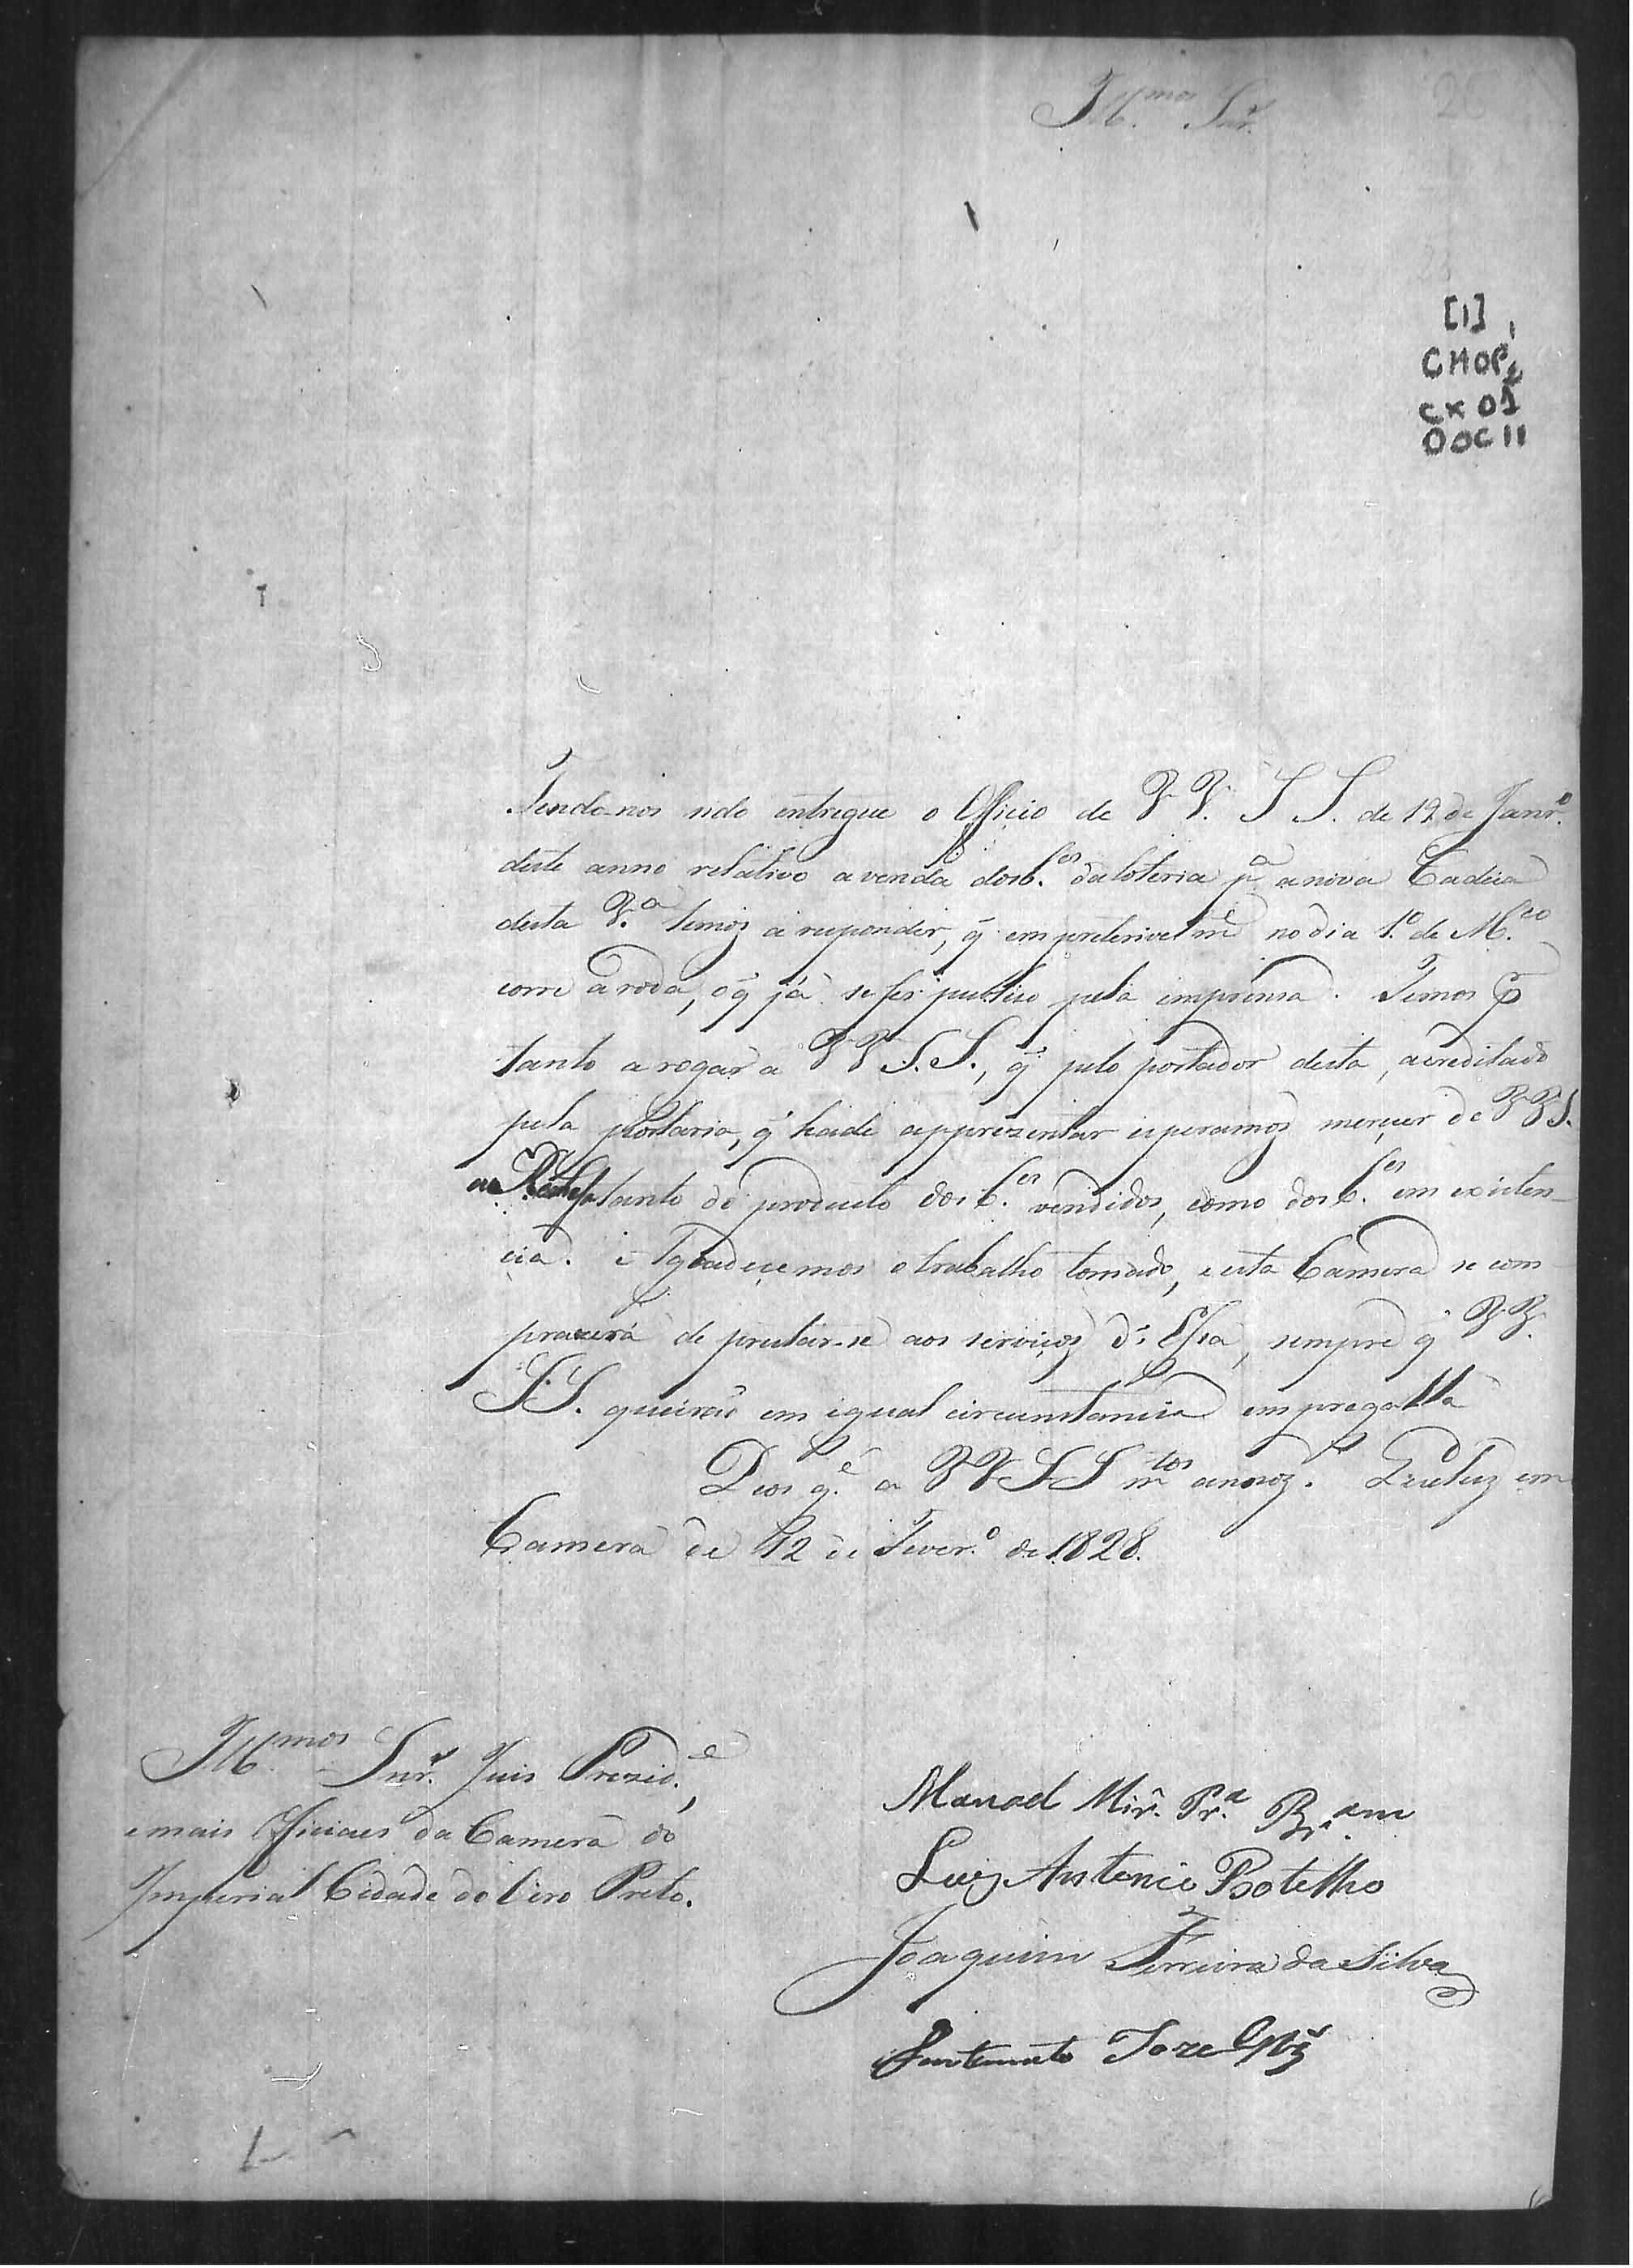 Ill.mos Snr.
26
[1]
CMOP
cx 01
DOC 11
Tendo-nos sido entregue o Officio de VV. SS. de 12 de Janr.o
deste anno relativo a venda dos b.es da loteria p.a a nova Cadeia
desta V.a temos a responder, q̃ empreterivelm.e no dia 1.o de M.ço
corre a roda, o q̃ já se fes publico pela imprensa. Temos
tanto a rogar a VV S.S., q̃ pelo portador desta, acreditado
pela Portaria, q̃ hade apprezentar esperamos merecer de VV S.
tanto do producto dos b.es vendidos, como dos b.es em existen-
cia. e Agradecemos o trabalho tomado, e esta Camera se com-
prazerá de prestar-se aos serviços d'Essa, sempre q̃ VV.
SS. queirão em igual circunstancia empregalla
Deos g.e a VV SS m.tos annos. Queluz em
Camera de 12 de Fever.o de 1828.
Ill.mos Snr. Juis Prezid.e,
e mais Officiaes da Camera do
Imperial Cidade do Ouro Preto.
Manoel Mir. Pr.a
Luiz Antonio Botelho
Joaquim Ferreira da Silva
Joze